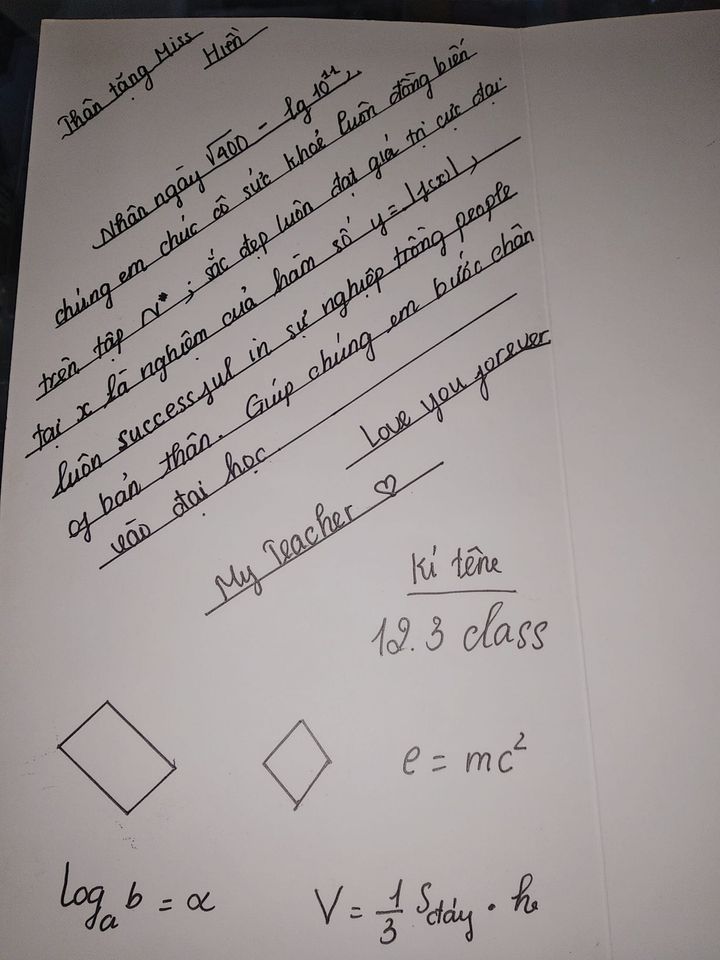 Thân tặng Miss
Hiền
Nhân ngày √400 - lg10¹¹,
chúng em chúc cô sức khoẻ luôn đồng biến
trên tập N*; sắc đẹp luôn đạt giá trị cực đại
tại x là nghiệm của hàm số y = |f(x)|,
luôn successful in sự nghiệp trồng people
of bản thân. Giúp chúng em bước chân
vào đại học
Love you forever
My Teacher ♡
Kí tên
12.3 class
e = mc²
logₐb = α
V = 1/3 Sđáy . h